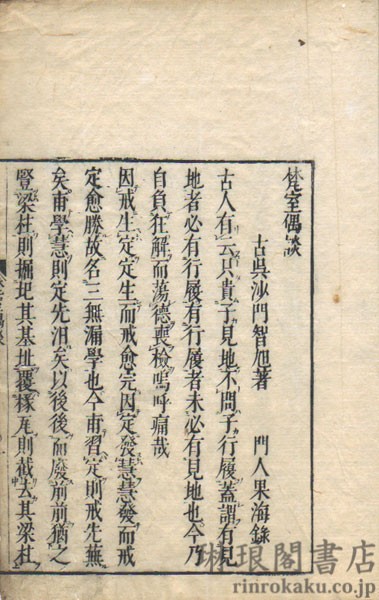 梵室偶談
古吳沙門智旭著　門人果海錄
古人有云只貴子見地不問子行履蓋謂有見
地者必有行履有行履者未必有見地也今乃
自負狂解而蕩德喪檢嗚呼痛哉
因戒生定定生而戒愈完因定發慧慧發而戒
定愈勝故名三無漏學也今甫習定則戒先蕪
矣甫學慧則定先汨矣以後後而廢前前猶之
豎梁柱則掘圮其基址覆椽瓦則截去其梁柱
琳琅閣書店
rinrokaku.co.jp